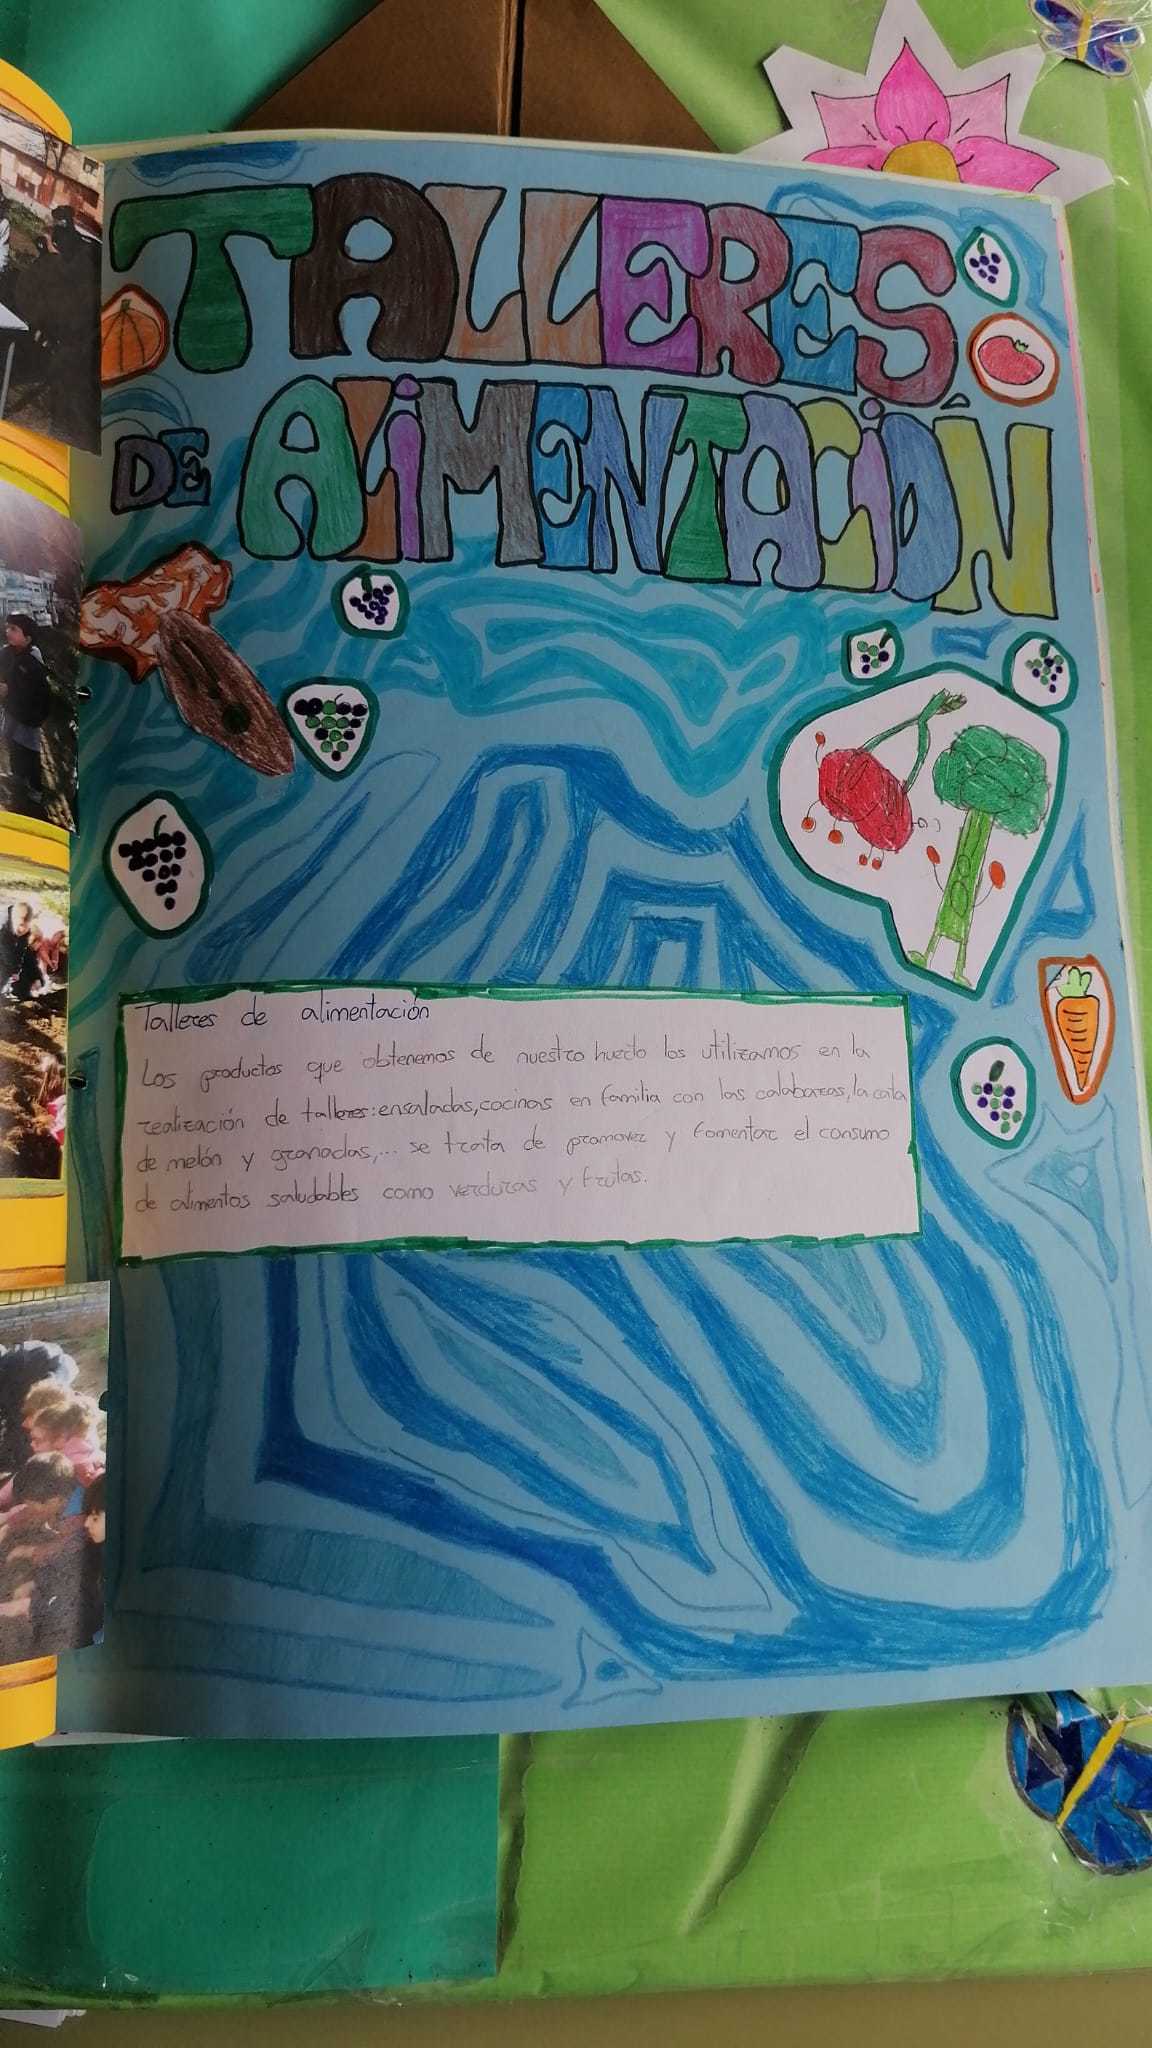 TALLERES
DE ALIMENTACIÓN
Talleres de alimentación
Los productos que obtenemos de nuestro huerto los utilizamos en la
realización de talleres: ensaladas, cocinas en familia con las calabazas, la cata
de melón y granadas,... se trata de promover y fomentar el consumo
de alimentos saludables como verduras y frutas.